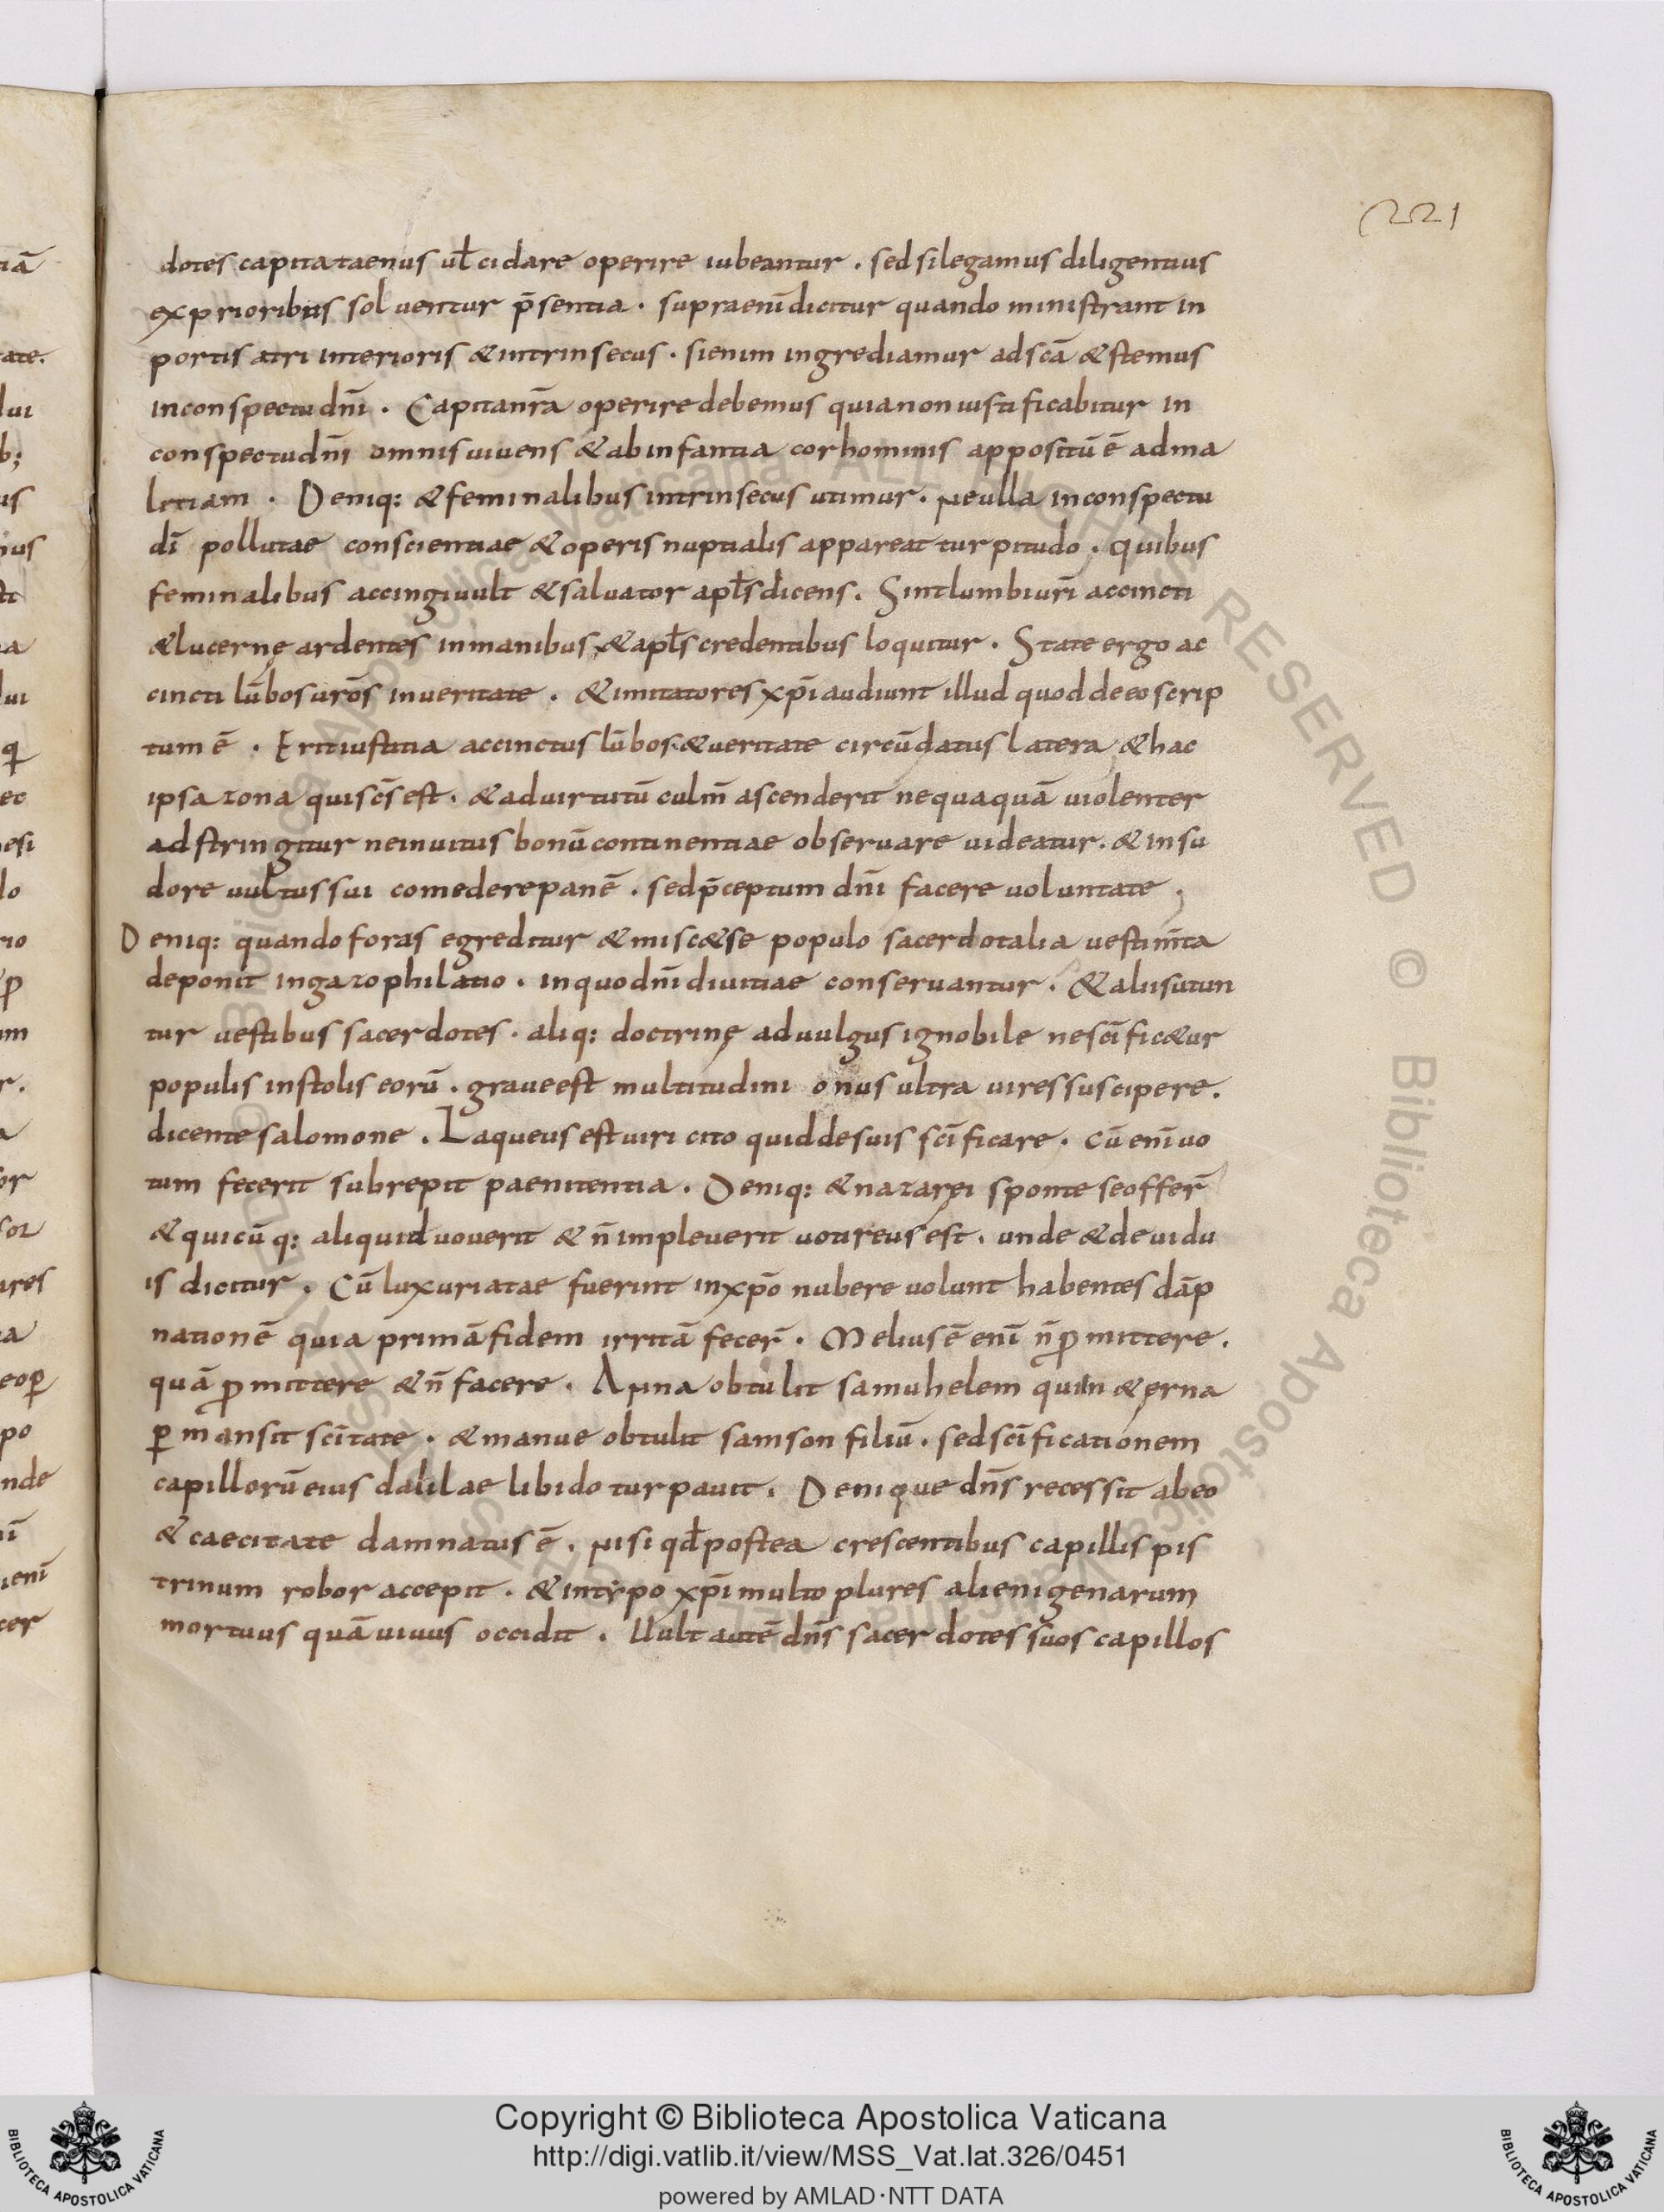 221
dotes capita taenus ul̄ cidare operire iubeantur . sed si legamus diligentius
ex prioribus soluentur p̄sentia . supra enī dicitur quando ministrant in
portis atri interioris & intrinsecus . si enim ingrediamur ad scā & stemus
in conspectu dn̄i . Capita nr̄a operire debemus quia non iustificabitur in
conspectu dn̄i omnis uiuens & ab infantia cor hominis appositū ē ad ma
litiam . Deniq: & feminalibus intrinsecus utimur . Ne ulla in conspectu
dī pollutae conscientiae & operis nuptialis appareat turpitudo . quibus
feminalibus accingi uult & saluator apl̄s dicens . Sint lumbi ur̄i accincti
& lucernę ardentes in manibus , & apl̄s credentibus loquitur . State ergo ac
cincti lūbos uros̄ in ueritate . & imitatores xp̄i audiunt illud quod de eo scrip
tum ē . Erit iustitia accinctus lūbos & ueritate circūdatus latera & hac
ipsa zona qui sc̄s est . & ad uirtutū culm̄ ascenderit nequaquā uiolenter
adstringitur ne inuitus bonū continentiae obseruare uideatur . & in su
dore uultus sui comedere panē . sed p̄ceptum dn̄i facere uoluntate ,
Deniq: quando foras egreditur & misc& se populo sacerdotalia uestim̄ta
deponit in gazophilatio . in quo dn̄i diuitiae conseruantur . & aliis utun
tur uestibus sacerdotes . aliq: doctrinę ad uulgus ignobile ne scīfic&ur
populis in stolis eorū . graue est multitudini onus ultra uires suscipere .
dicente salomone . Laqueus est uiri cito quid de suis scīficare . cū enī uo
tum fecerit subrepit paenitentia . Deniq: & nazarei sponte se offer̄
& quicūq: aliquid uouerit & n̄ impleuerit uoti reus est . unde & de uidu
is dicitur . Cū luxuriatae fuerint in xp̄o nubere uolunt habentes dāp
nationē quia primā fidem irritā fecer̄ . Melius ē enī n̄ ꝓmittere .
quā ꝓmittere & n̄ facere . Anna obtulit samuhelem qui in &erna
ꝑmansit scītate . & manue obtulit samson filiū . sed scīficationem
capillorū eius dalilae libido turpauit . Denique dn̄s recessit ab eo
& caecitate damnatus ē . Nisi qd̄ postea crescentibus capillis pis
trinum robor accepit . & in typo xp̄i multo plures alienigenarum
mortuus quā uiuus occidit . Uult autē dn̄s sacerdotes suos capillos
Copyright © Biblioteca Apostolica Vaticana
http://digi.vatlib.it/view/MSS_Vat.lat.326/0451
powered by AMLAD·NTT DATA